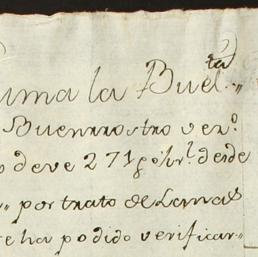 uma la Buel.ta
Buenrrostro vez.º
o deve 271 desde
por trato de Lamas
se ha podido verificar